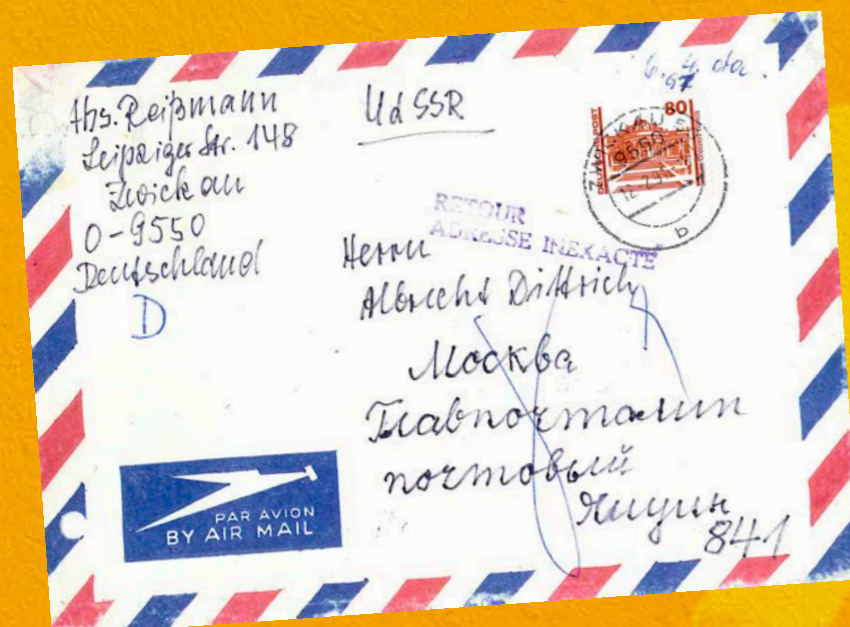 Abs. Reißmann
Leipziger Str. 148
Zwickau
O-9550
Deutschland
D
UdSSR
80
DEUTSCHE POST
9550
b
RETOUR
ADRESSE INEXACTE
Herrn
Albrecht Dittrich
Москва
Главпочтамт
почтовый
Ящик
841
PAR AVION
BY AIR MAIL